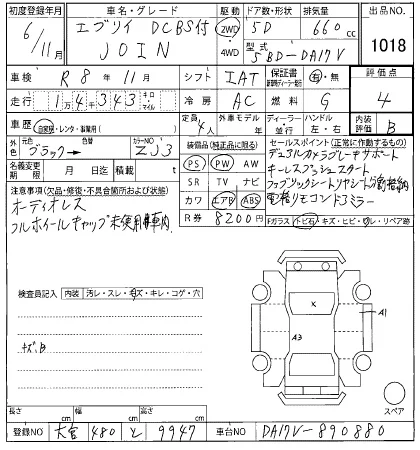 初度登録年月 車名・グレード 駆動 ドア数・形状 排気量 出品NO
6/11月 エブリイ DCBS付 JOIN 2WD 4WD 5D 660cc 1018
型式 5BD-DA17V
車検 R8年11月 シフト IAT 保証書 有・無 評価点
走行 1万4千343 キロ・マイル 冷房 AC 燃料 G 4
車歴 自家用・レンタ・事業用( ) 定員 4人 外車モデル 年 ディーラー・並行 ハンドル 左・右 内装評価 B
外色 元色 ブラック→ 色替 カラーNO ZJ3
名義変更期限 月 日迄 積載 t
装備品(純正品に限る)
PS PW AW
SR TV ナビ
カワ エアB ABS
R券 8200円
セールスポイント(正常に作動するもの)
デュアルカメラブレーキサポート
キーレスプッシュスタート
電格リモコンドアミラー
Fガラス トビ石・キズ・ヒビ・ワレ・リペア跡
注意事項(欠品・修復・不具合箇所および状態)
オーディオレス
フルホイールキャップ未使用車内
検査員記入 内装 汚レ・スレ・キズ・キレ・コゲ・穴
キズ、B
X
A1
A3
スペア
長さ cm 幅 cm 高さ cm
登録NO 大宮 480 と 9947 車台NO DA17V-890880